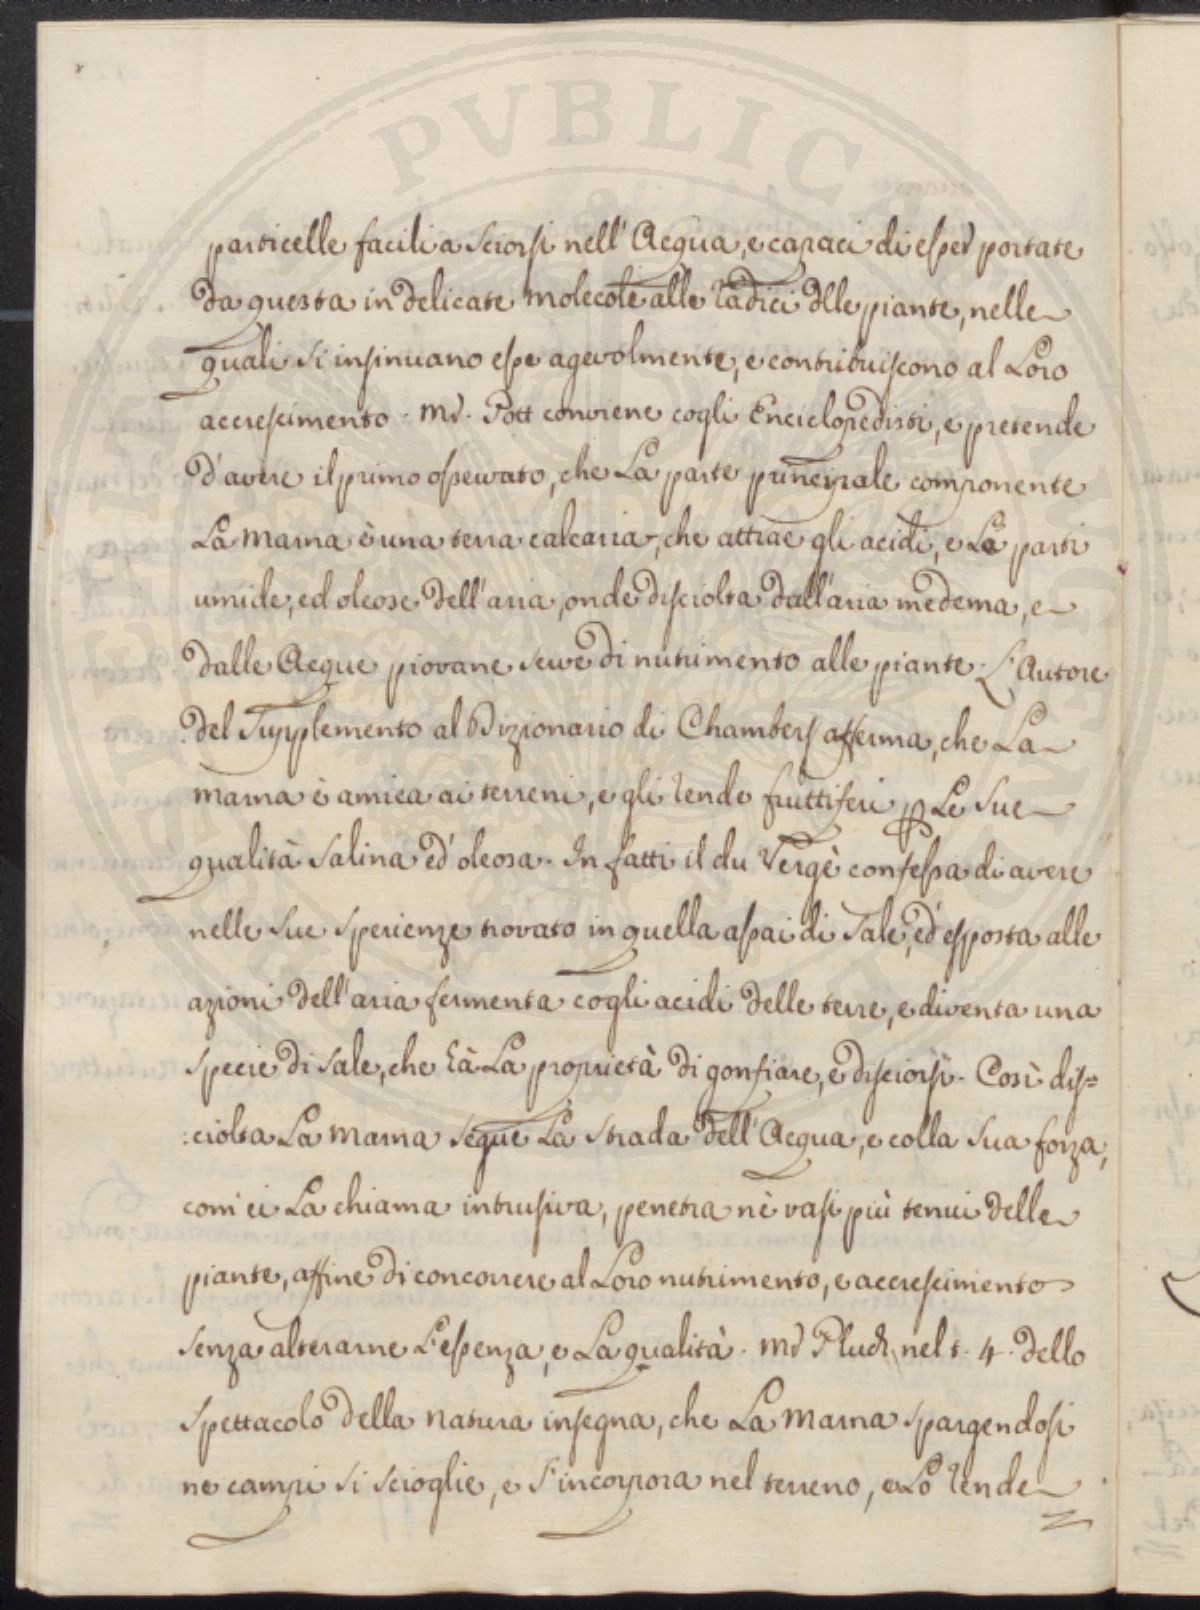 PVBLICA
particelle facili a sciorsi nell'Acqua, e capaci di esser portate
da questa in delicate molecole alle radici dlle piante, nelle
quali si insinuano esse agevolmente, e contribuiscono al Loro
accrescimento. Mr. Pott conviene cogli Enciclopedisti, e pretende
d'avere il primo osservato, che La parte principale componente
La marna è una terra calcaria, che attrae gli acidi, e Le parti
umide, ed oleose dell'aria, onde disciolta dall'aria medema, e
dalle Acque piovane serve di nutrimento alle piante. L'Autore
del Supplemento al Dizionario di Chambers afferma, che La
marna è amica ai terreni, e gli rende fruttiferi ꝑ Le sue
qualità salina ed oleosa. In fatti il du Vergè confessa di avere
nelle sue sperienze trovato in quella assai di sale, ed esposta alle
azioni dell'aria fermenta cogli acidi delle terre, e diventa una
specie di sale, che hà La proprietà di gonfiare, e disciorsi. Così dis=
:ciolta La marna segue La strada dell'Acqua, e colla sua forza,
com'ei La chiama intrusiva, penetra nè vasi più tenui delle
piante, affine di concorrere al Loro nutrimento, e accrescimento
senza alterarne L'essenza, e La qualità. Mr Pluch nel t. 4. dello
spettacolo della natura insegna, che La marna spargendosi
ne campi si scioglie, e s'incorpora nel terreno, e Lo rende